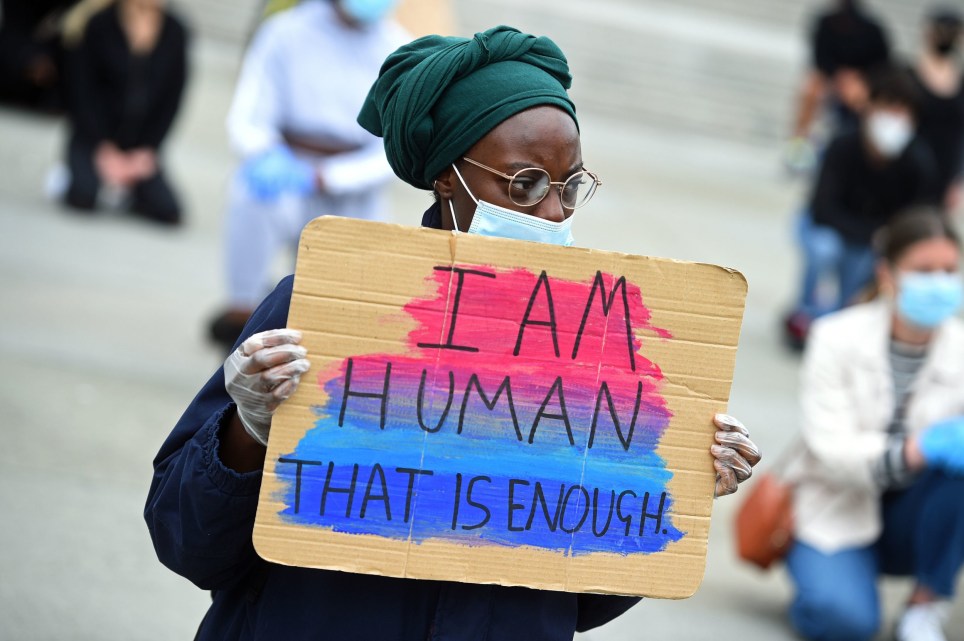 I AM
HUMAN
THAT IS ENOUGH.